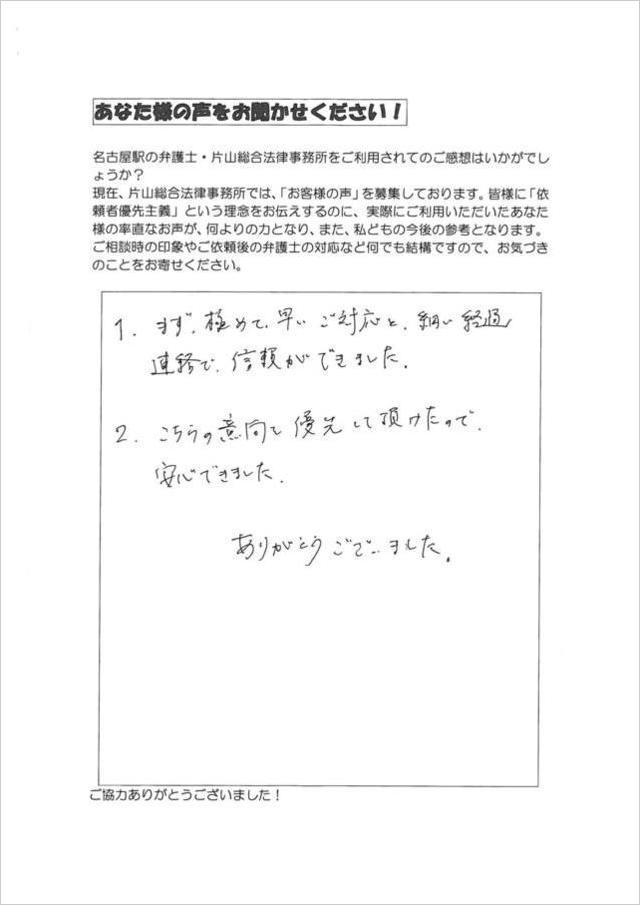 あなた様の声をお聞かせください！
名古屋駅の弁護士・片山総合法律事務所をご利用されてのご感想はいかがでし
ょうか？
現在、片山総合法律事務所では、「お客様の声」を募集しております。皆様に「依
頼者優先主義」という理念をお伝えするのに、実際にご利用いただいたあなた
様の率直なお声が、何よりの力となり、また、私どもの今後の参考となります。
ご相談時の印象やご依頼後の弁護士の対応など何でも結構ですので、お気づき
のことをお寄せください。
1. まず、極めて早いご対応と、細い経過
連絡で、信頼ができました。
2. こちらの意向を優先して頂けたので、
安心できました。
ありがとうございました。
ご協力ありがとうございました！